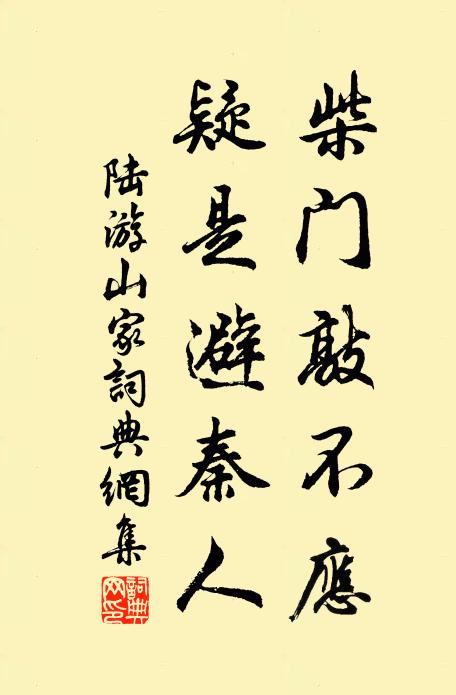 柴门敲不應
疑是避秦人
陆游山家詞典網集
詞典网印